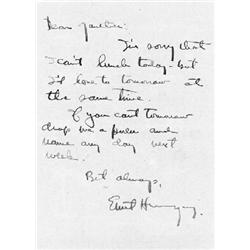 I'm sorry that
I can't lunch today - but
I'd love to tomorrow at
the same time.
If you can't tomorrow
drop me a and
name any day next
week.
Best always,
Ernest Hemingway.